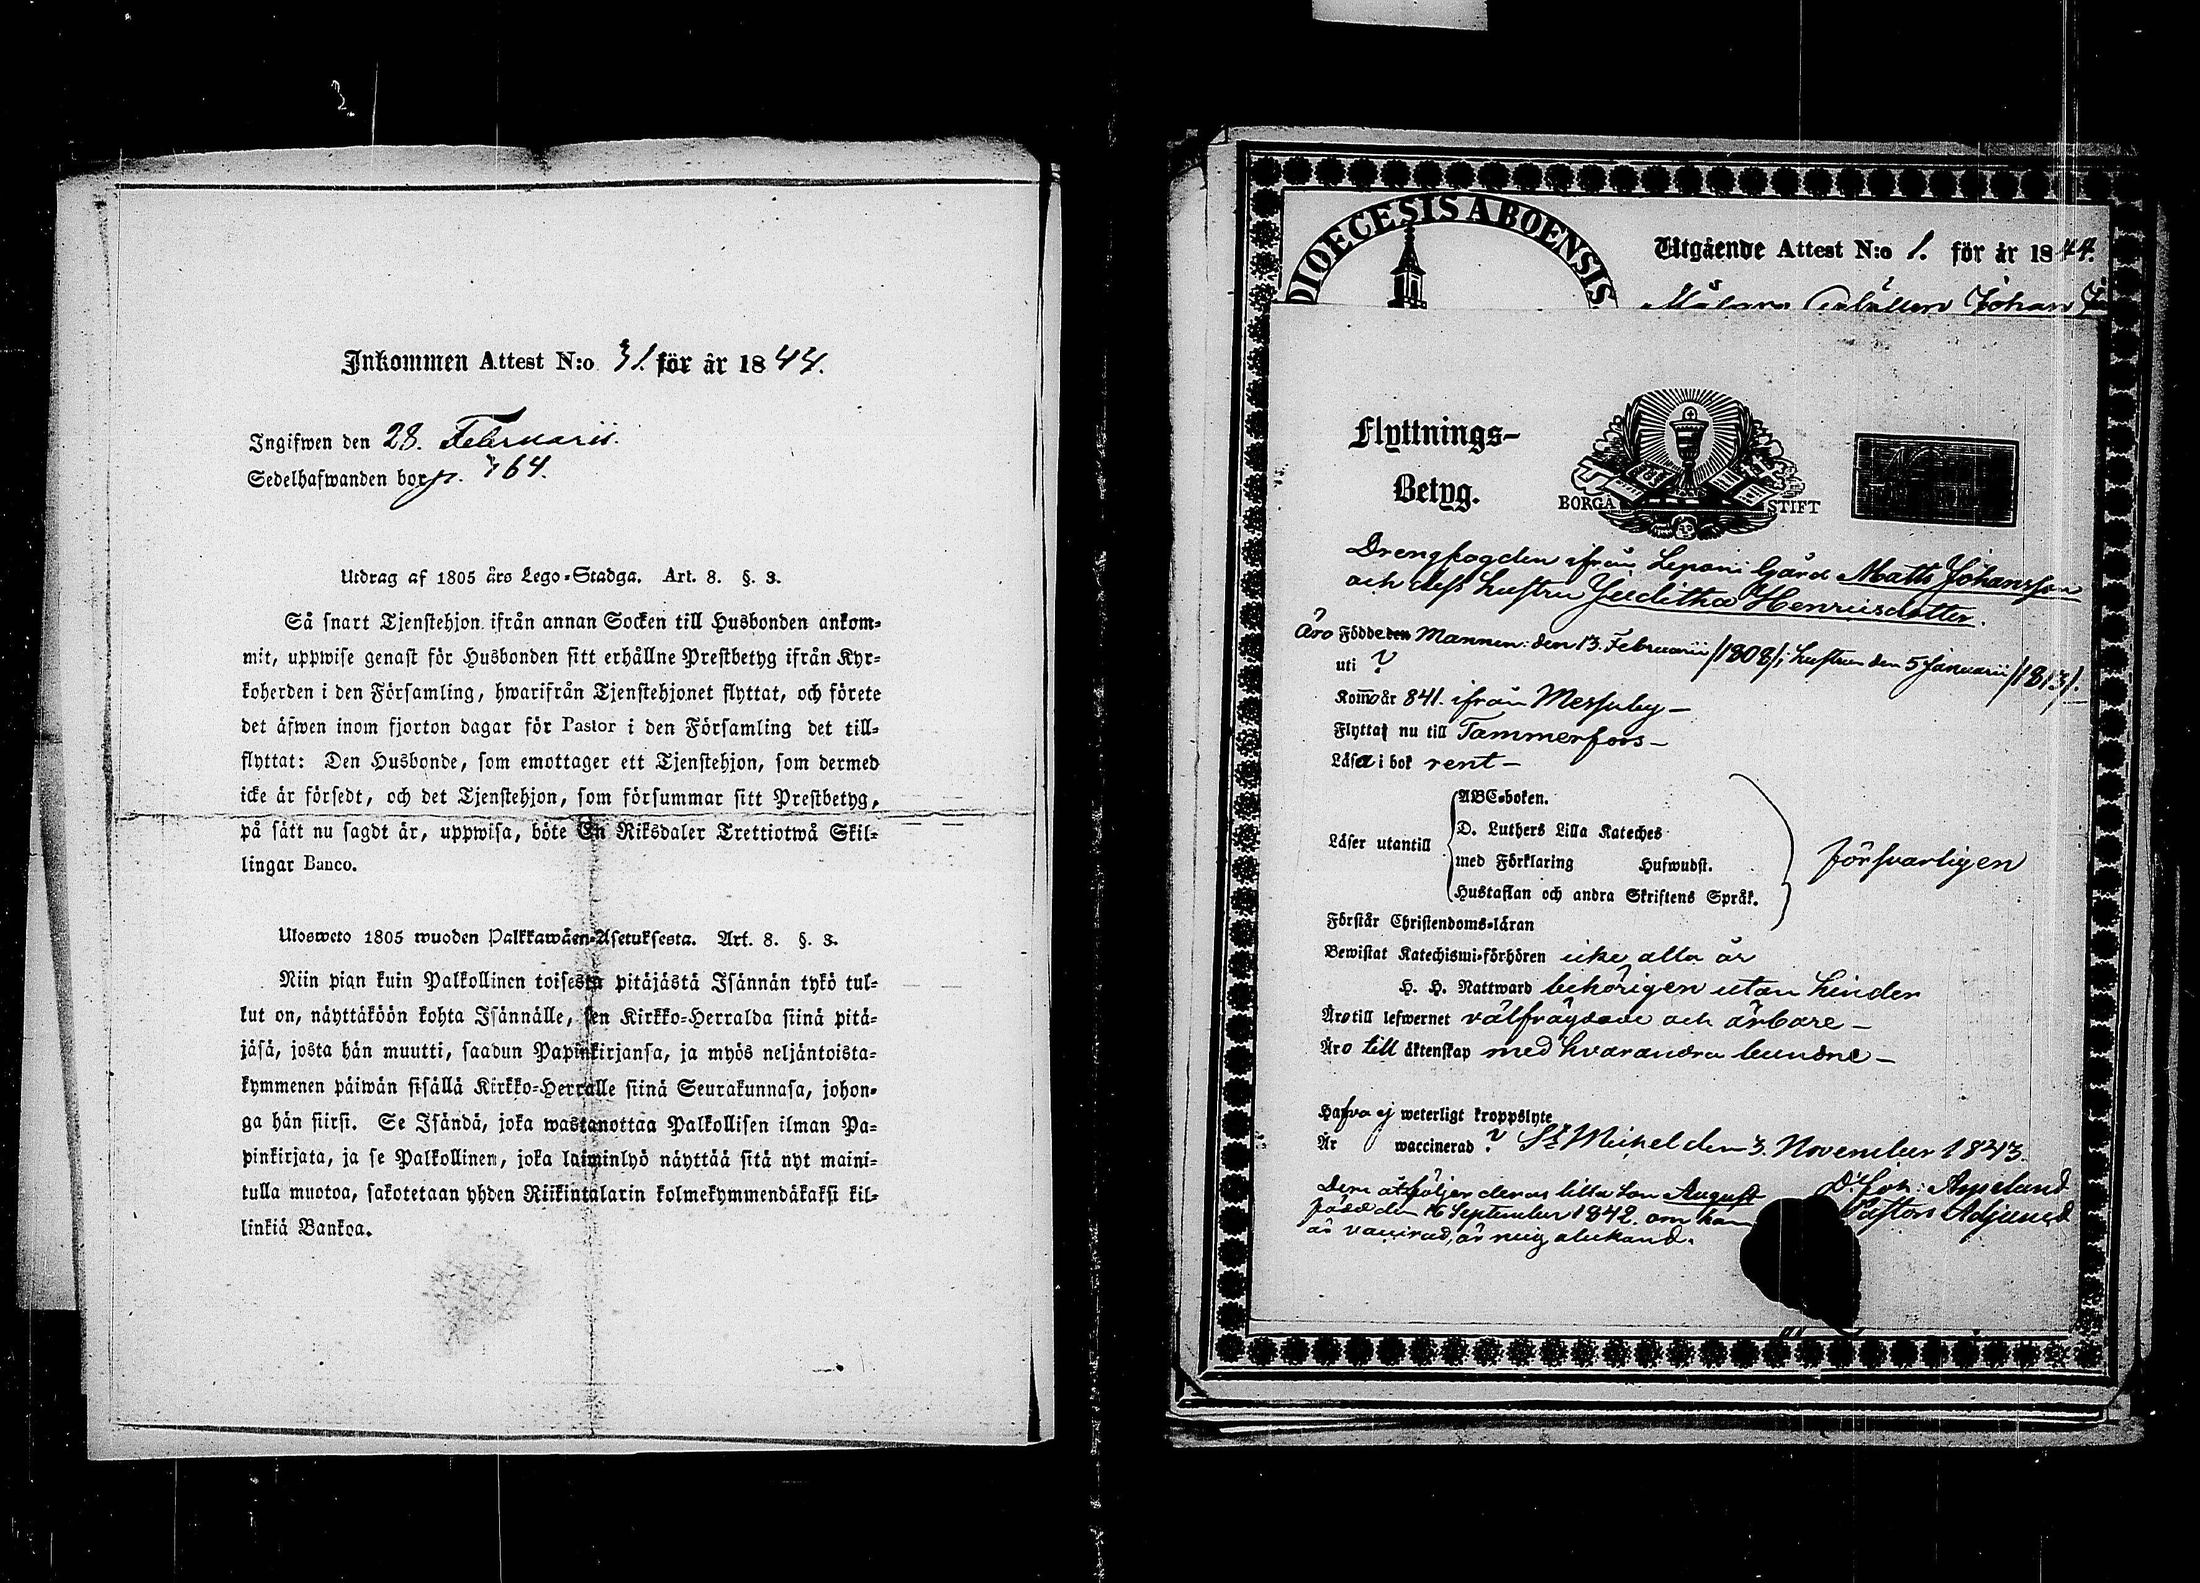 2
Inkommen Attest N:o 31. för år 1844.
Ingifwen den 28. Februarii.
Sedelhafwanden bor p. 764.
Utdrag af 1805 års Lego-Stadga. Art. 8. §. 3.
Så snart Tjenstehjon ifrån annan Socken till Husbonden ankom-
mit, uppwise genast för Husbonden sitt erhållne Prestbetyg ifrån Kyr-
koherden i den Församling, hwarifrån Tjenstehjonet flyttat, och förete
det äfwen inom fjorton dagar för Pastor i den Församling det till-
flyttat: Den Husbonde, som emottager ett Tjenstehjon, som dermed
icke är försedt, och det Tjenstehjon, som försummar sitt Prestbetyg,
på sätt nu sagdt är, uppwisa, böte En Riksdaler Trettiotwå Skil-
lingar Banco.
Ulosweto 1805 wuoden Palkkawäen-Asetuksesta. Art. 8. §. 3.
Niin pian kuin Palkollinen toisesta pitäjästä Isännän tykö tul-
lut on, näyttäköön kohta Isännälle, sen Kirkko-Herralda siinä pitä-
jäsä, josta hän muutti, saadun Papinkirjansa, ja myös neljäntoista-
kymmenen päiwän sisällä Kirkko-Herralle siinä Seurakunnasa, johon-
ga hän siirsi. Se Isändä, joka wastanottaa Palkollisen ilman Pa-
pinkirjata, ja se Palkollinen, joka laiminlyö näyttää sitä nyt maini-
tulla muotoa, sakotetaan yhden Riikintalarin kolmekymmendäkaksi kil-
linkiä Bankoa.
DIOECESIS ABOENSIS
Utgående Attest N:o 1. för år 1844.
Målare Johan
Flyttnings-
Betyg.
BORGÅ STIFT
Drengfogden ifrån Leponi Gård Matts Johansson
och dess hustru Juditha Henricsdotter.
Äro Födde den Mannen: den 13. Februarii /1808/; hustrun den 5 Januarii /1813/.
uti ?
Kom̄o år 841. ifrån Messuby –
Flytta nu till Tammerfors –
Läsa i bok rent –
Läser utantill
ABC-boken.
D. Luthers Lilla Kateches
med Förklaring Hufwudst.
Hustaflan och andra Skriftens Språk.
försvarligen
Förstår Christendoms-läran
Bewistat Katechismi-förhören icke alla år
H. H. Nattward behörigen utan hinder
Äro till lefwernet välfrägdade och ärbare –
Äro till äktenskap med hvarandra bundne –
Hafva ej weterligt kroppslyte
Är waccinerad ? St Michel den 3. November 1843.
Dem åtföljer deras lilla son August
född den 16 September 1842. om han
är vaccinerad, är mig obekand.
Joh: Aspelund
Pastors Adjunct